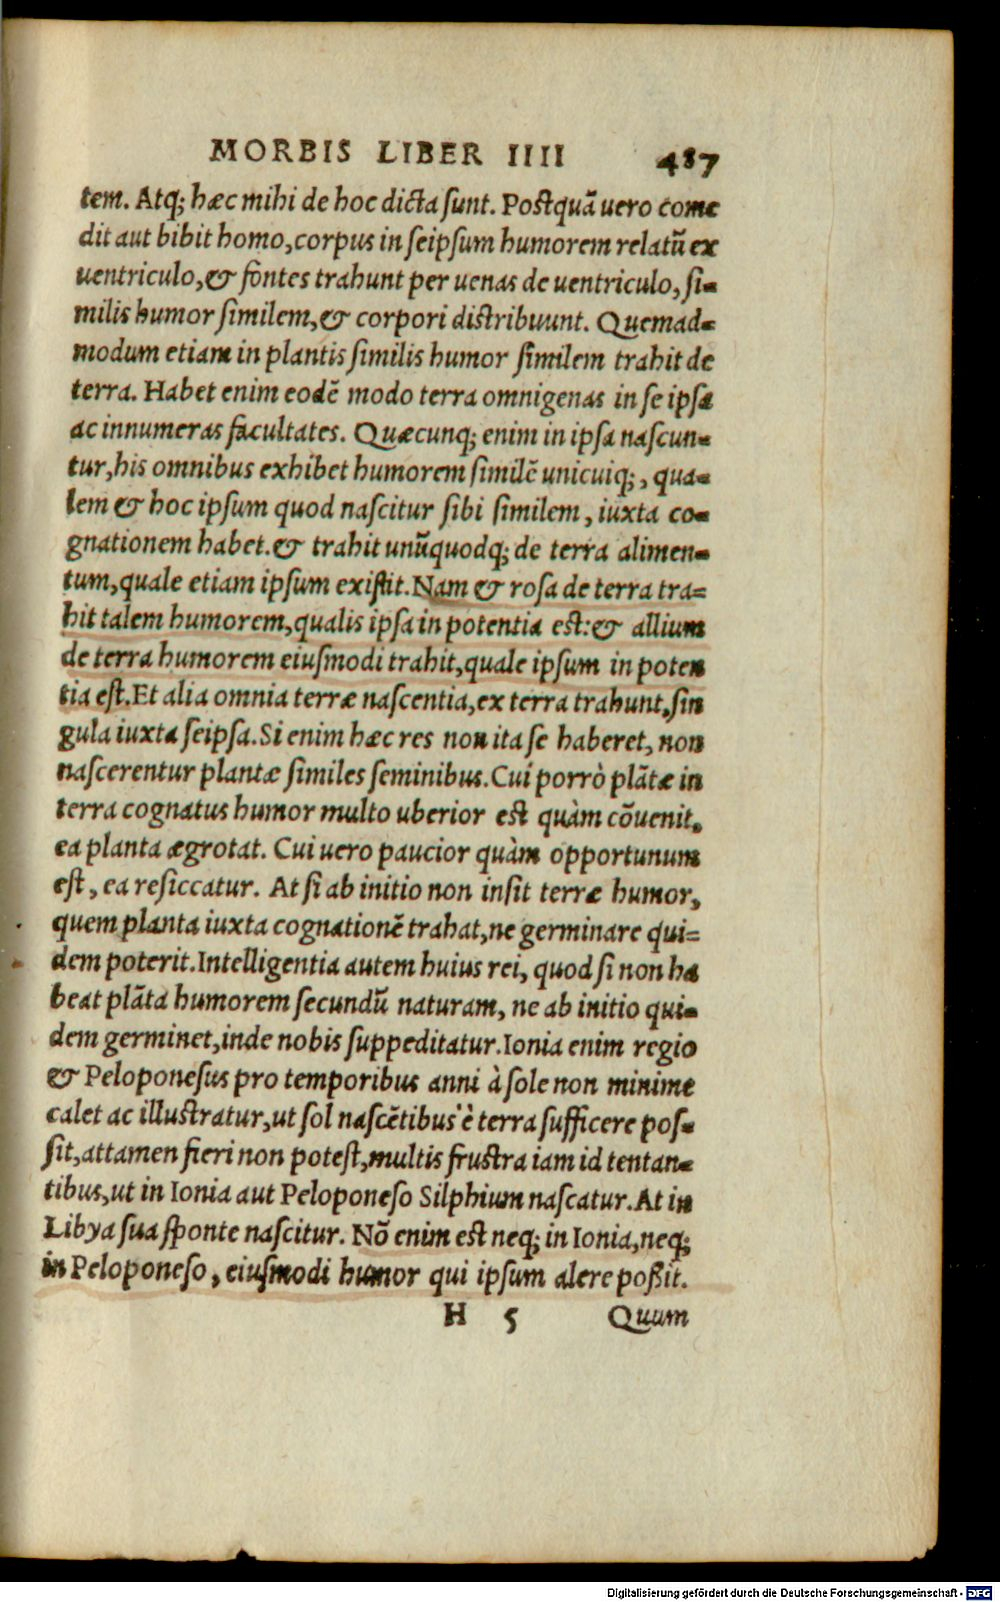 MORBIS LIBER IIII 487
tem. Atq; hæc mihi de hoc dicta sunt. Postquã uero come
dit aut bibit homo, corpus in seipsum humorem relatũ ex
uentriculo, & fontes trahunt per uenas de uentriculo, si-
milis humor similem, & corpori distribuunt. Quemad-
modum etiam in plantis similis humor similem trahit de
terra. Habet enim eodẽ modo terra omnigenas in se ipsa
ac innumeras facultates. Quæcunq; enim in ipsa nascun-
tur, his omnibus exhibet humorem similẽ unicuiq;, qua-
lem & hoc ipsum quod nascitur sibi similem, iuxta co-
gnationem habet. & trahit unũquodq; de terra alimen-
tum, quale etiam ipsum existit. Nam & rosa de terra tra-
hit talem humorem, qualis ipsa in potentia est: & allium
de terra humorem eiusmodi trahit, quale ipsum in poten
tia est. Et alia omnia terræ nascentia, ex terra trahunt, sin
gula iuxta seipsa. Si enim hæc res non ita se haberet, non
nascerentur plantæ similes seminibus. Cui porrò plãtæ in
terra cognatus humor multo uberior est quàm cõuenit,
ea planta ægrotat. Cui uero paucior quàm opportunum
est, ea resiccatur. At si ab initio non insit terræ humor,
quem planta iuxta cognationẽ trahat, ne germinare qui-
dem poterit. Intelligentia autem huius rei, quod si non ha
beat plãta humorem secundũ naturam, ne ab initio qui-
dem germinet, inde nobis suppeditatur. Ionia enim regio
& Peloponesus pro temporibus anni à sole non minime
calet ac illustratur, ut sol nascẽtibus è terra sufficere pos-
sit, attamen fieri non potest, multis frustra iam id tentan-
tibus, ut in Ionia aut Peloponeso Silphium nascatur. At in
Libya sua sponte nascitur. Nõ enim est neq; in Ionia, neq;
in Peloponeso, eiusmodi humor qui ipsum alere poßit.
H 5 Quum
Digitalisierung gefördert durch die Deutsche Forschungsgemeinschaft - DFG